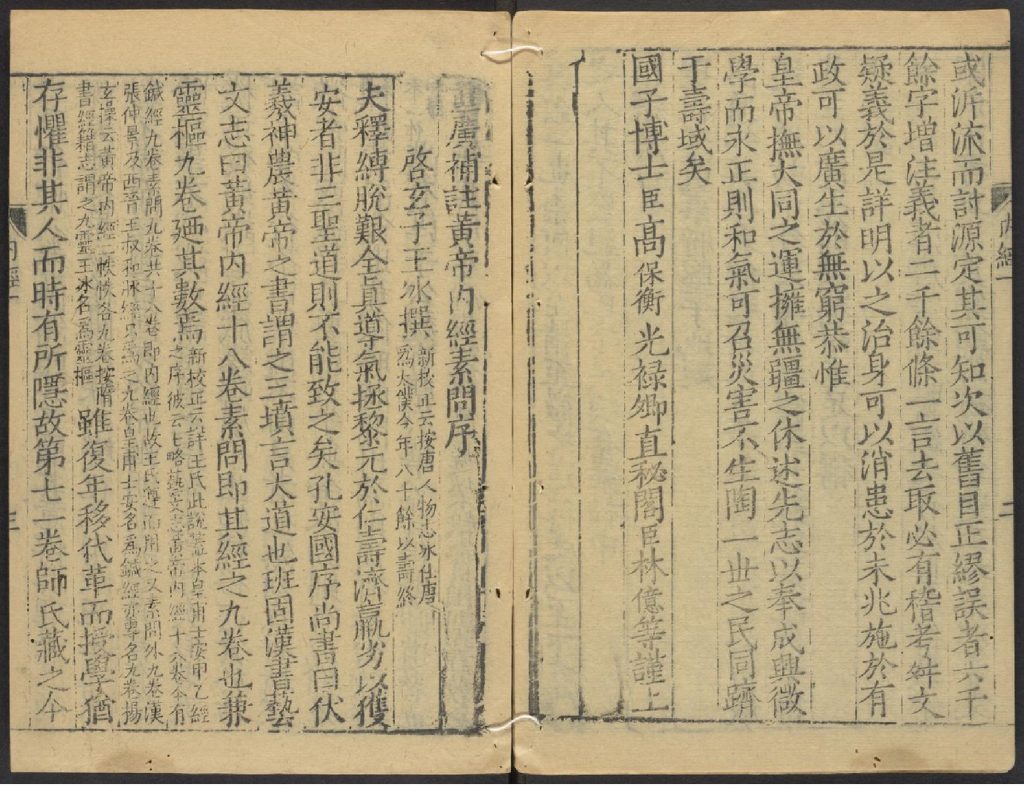 或泝流而討源定其可知次以舊目正繆誤者六千
餘字增注義者二千餘條一言去取必有稽考舛文
疑義於是詳明以之治身可以消患於未兆施於有
政可以廣生於無窮恭惟
皇帝撫大同之運擁無疆之休述先志以奉成興微
學而永正則和氣可召災害不生陶一世之民同躋
于壽域矣
國子博士臣高保衡 光祿卿直秘閣臣林億等謹上
內經一
二
廣補註黃帝內經素問序
啓玄子王冰撰 新校正云按唐人物志冰仕唐
爲太僕令年八十餘以壽終
夫釋縛脫艱全眞導氣拯黎元於仁壽濟羸劣以獲
安者非三聖道則不能致之矣孔安國序尚書曰伏
羲神農黃帝之書謂之三墳言大道也班固漢書藝
文志曰黃帝內經十八卷素問即其經之九卷也兼
靈樞九卷廼其數焉 新校正云詳王氏此說蓋本皇甫士安甲乙經
之序彼云七略藝文志黃帝內經十八卷今有
鍼經九卷素問九卷共十八卷即內經也故王氏遵而用之又素問外九卷漢
張仲景及西晉王叔和脉經只爲之九卷皇甫士安名爲鍼經亦專名九卷楊
玄操云黃帝內經二帙帙各九卷按隋
書經籍志謂之九靈王冰名爲靈樞 雖復年移代革而授學猶
存懼非其人而時有所隱故第七一卷師氏藏之今
內經一
三